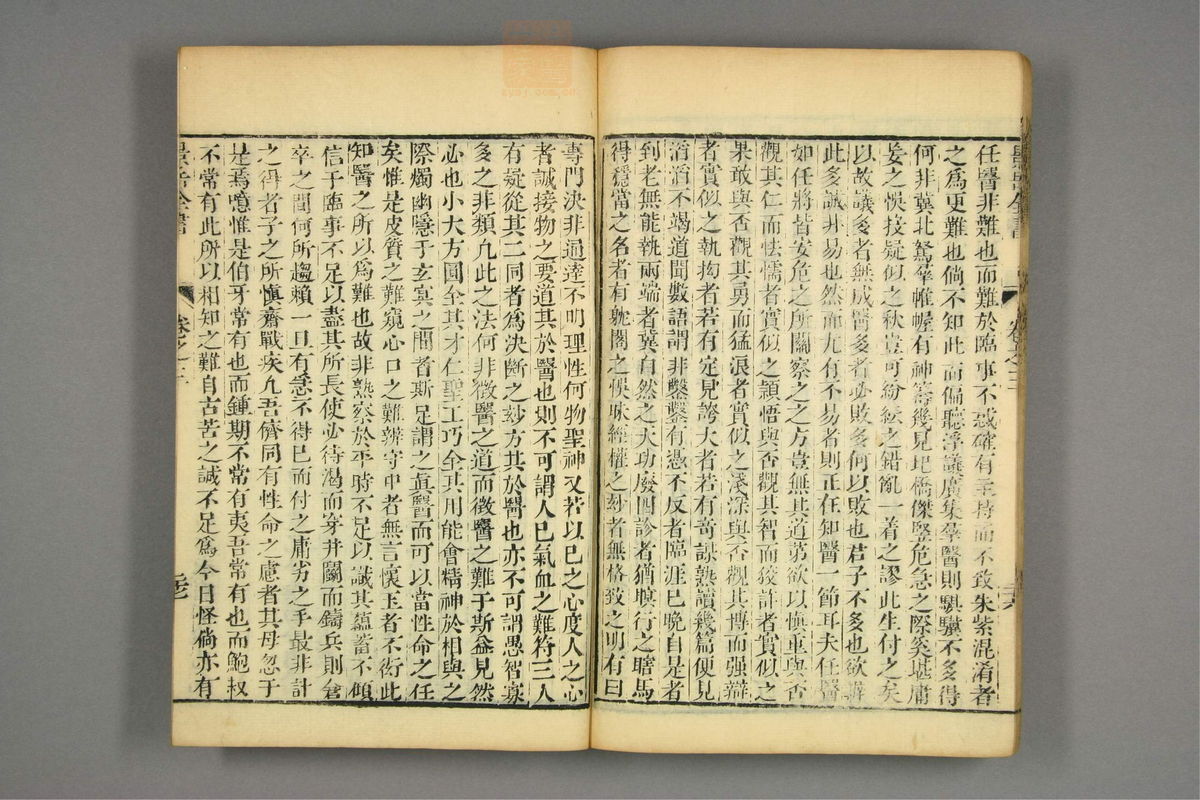 任醫非難也而難於臨事不惑確有主持而不致朱紫混淆者
之爲更難也倘不知此而偏聽浮議廣集羣醫則騏驥不多得
何非冀北駑羣帷幄有神籌幾見圯橋傑竪危急之際奚堪庸
妄之悞投疑似之秋豈可紛紜之錯亂一着之謬此生付之矣
以故議多者無成醫多者必敗多何以敗也君子不多也欲辨
此多誠非易也然而尤有不易者則正在知醫一節耳夫任醫
如任將皆安危之所關察之之方豈無其道第欲以慎重與否
觀其仁而怯懦者實似之頴悟與否觀其智而狡詐者實似之
果敢與否觀其勇而猛浪者實似之淺深與否觀其博而强辯
者實似之執拘者若有定見誇大者若有竒謀熟讀幾篇便見
滔滔不竭道聞數語謂非鑿鑿有憑不反者臨涯已晚自是者
到老無能執兩端者冀自然之天功廢四診者猶瞑行之瞎馬
得穩當之名者有躭閣之悞昧經權之玅者無格致之明有曰
專門决非通達不明理性何物聖神又若以已之心度人之心
者誠接物之要道其於醫也則不可謂人已氣血之難符三人
有疑從其二同者爲决斷之玅方其於醫也亦不可謂愚智寡
多之非類凢此之法何非徴醫之道而徴醫之難于斯益見然
必也小大方圓全其才仁聖工巧全其用能會精神於相與之
際燭幽隱于玄冥之間者斯足謂之真醫而可以當性命之任
矣惟是皮質之難窺心口之難辨守中者無言懷玉者不衒此
知醫之所以爲難也故非熟察於平時不足以識其蘊蓄不傾
信于臨事不足以盡其所長使必待渴而穿井鬭而鑄兵則倉
卒之間何所趨賴一旦有急不得已而付之庸劣之手最非計
之得者子之所慎齋戰疾凢吾儕同有性命之慮者其毋忽于
是焉噫惟是伯牙常有也而鍾期不常有夷吾常有也而鮑叔
不常有此所以相知之難自古苦之誠不足爲今日怪倘亦有
景岳全書
卷之三